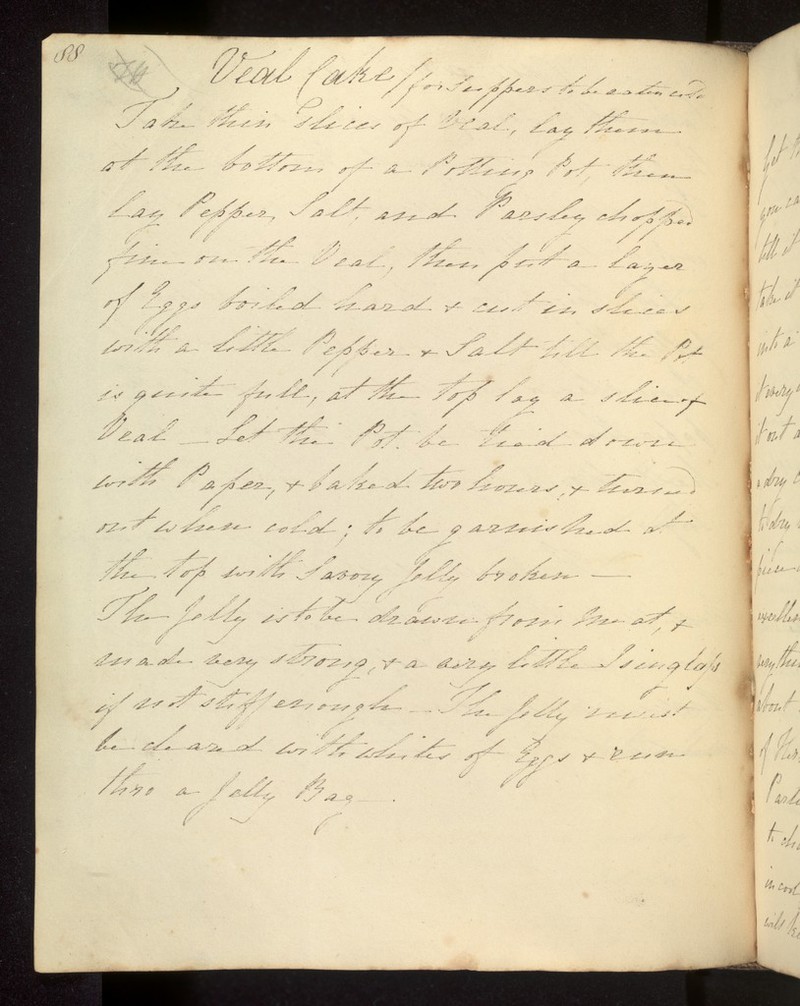 88
Veal Cake / for Suppers to be eaten cold
Take thin Slices of Veal, lay them
at the bottom of a Potting Pot, then
lay Pepper, Salt, and Parsley chopped
fine on the Veal, then put a layer
of Eggs boiled hard & cut in slices
with a little Pepper & Salt till the Pot
is quite full, at the top lay a slice of
Veal – Let the Pot be tied down
with Paper, & baked two hours, & turned
out when cold; to be garnished at
the top with Savory Jelly broken –
The Jelly is to be drawn from Meat, &
made very strong, & a very little Isinglass
if not stiff enough – The Jelly must
be cleared with whites of Eggs & run
thro a Jelly Bag – .